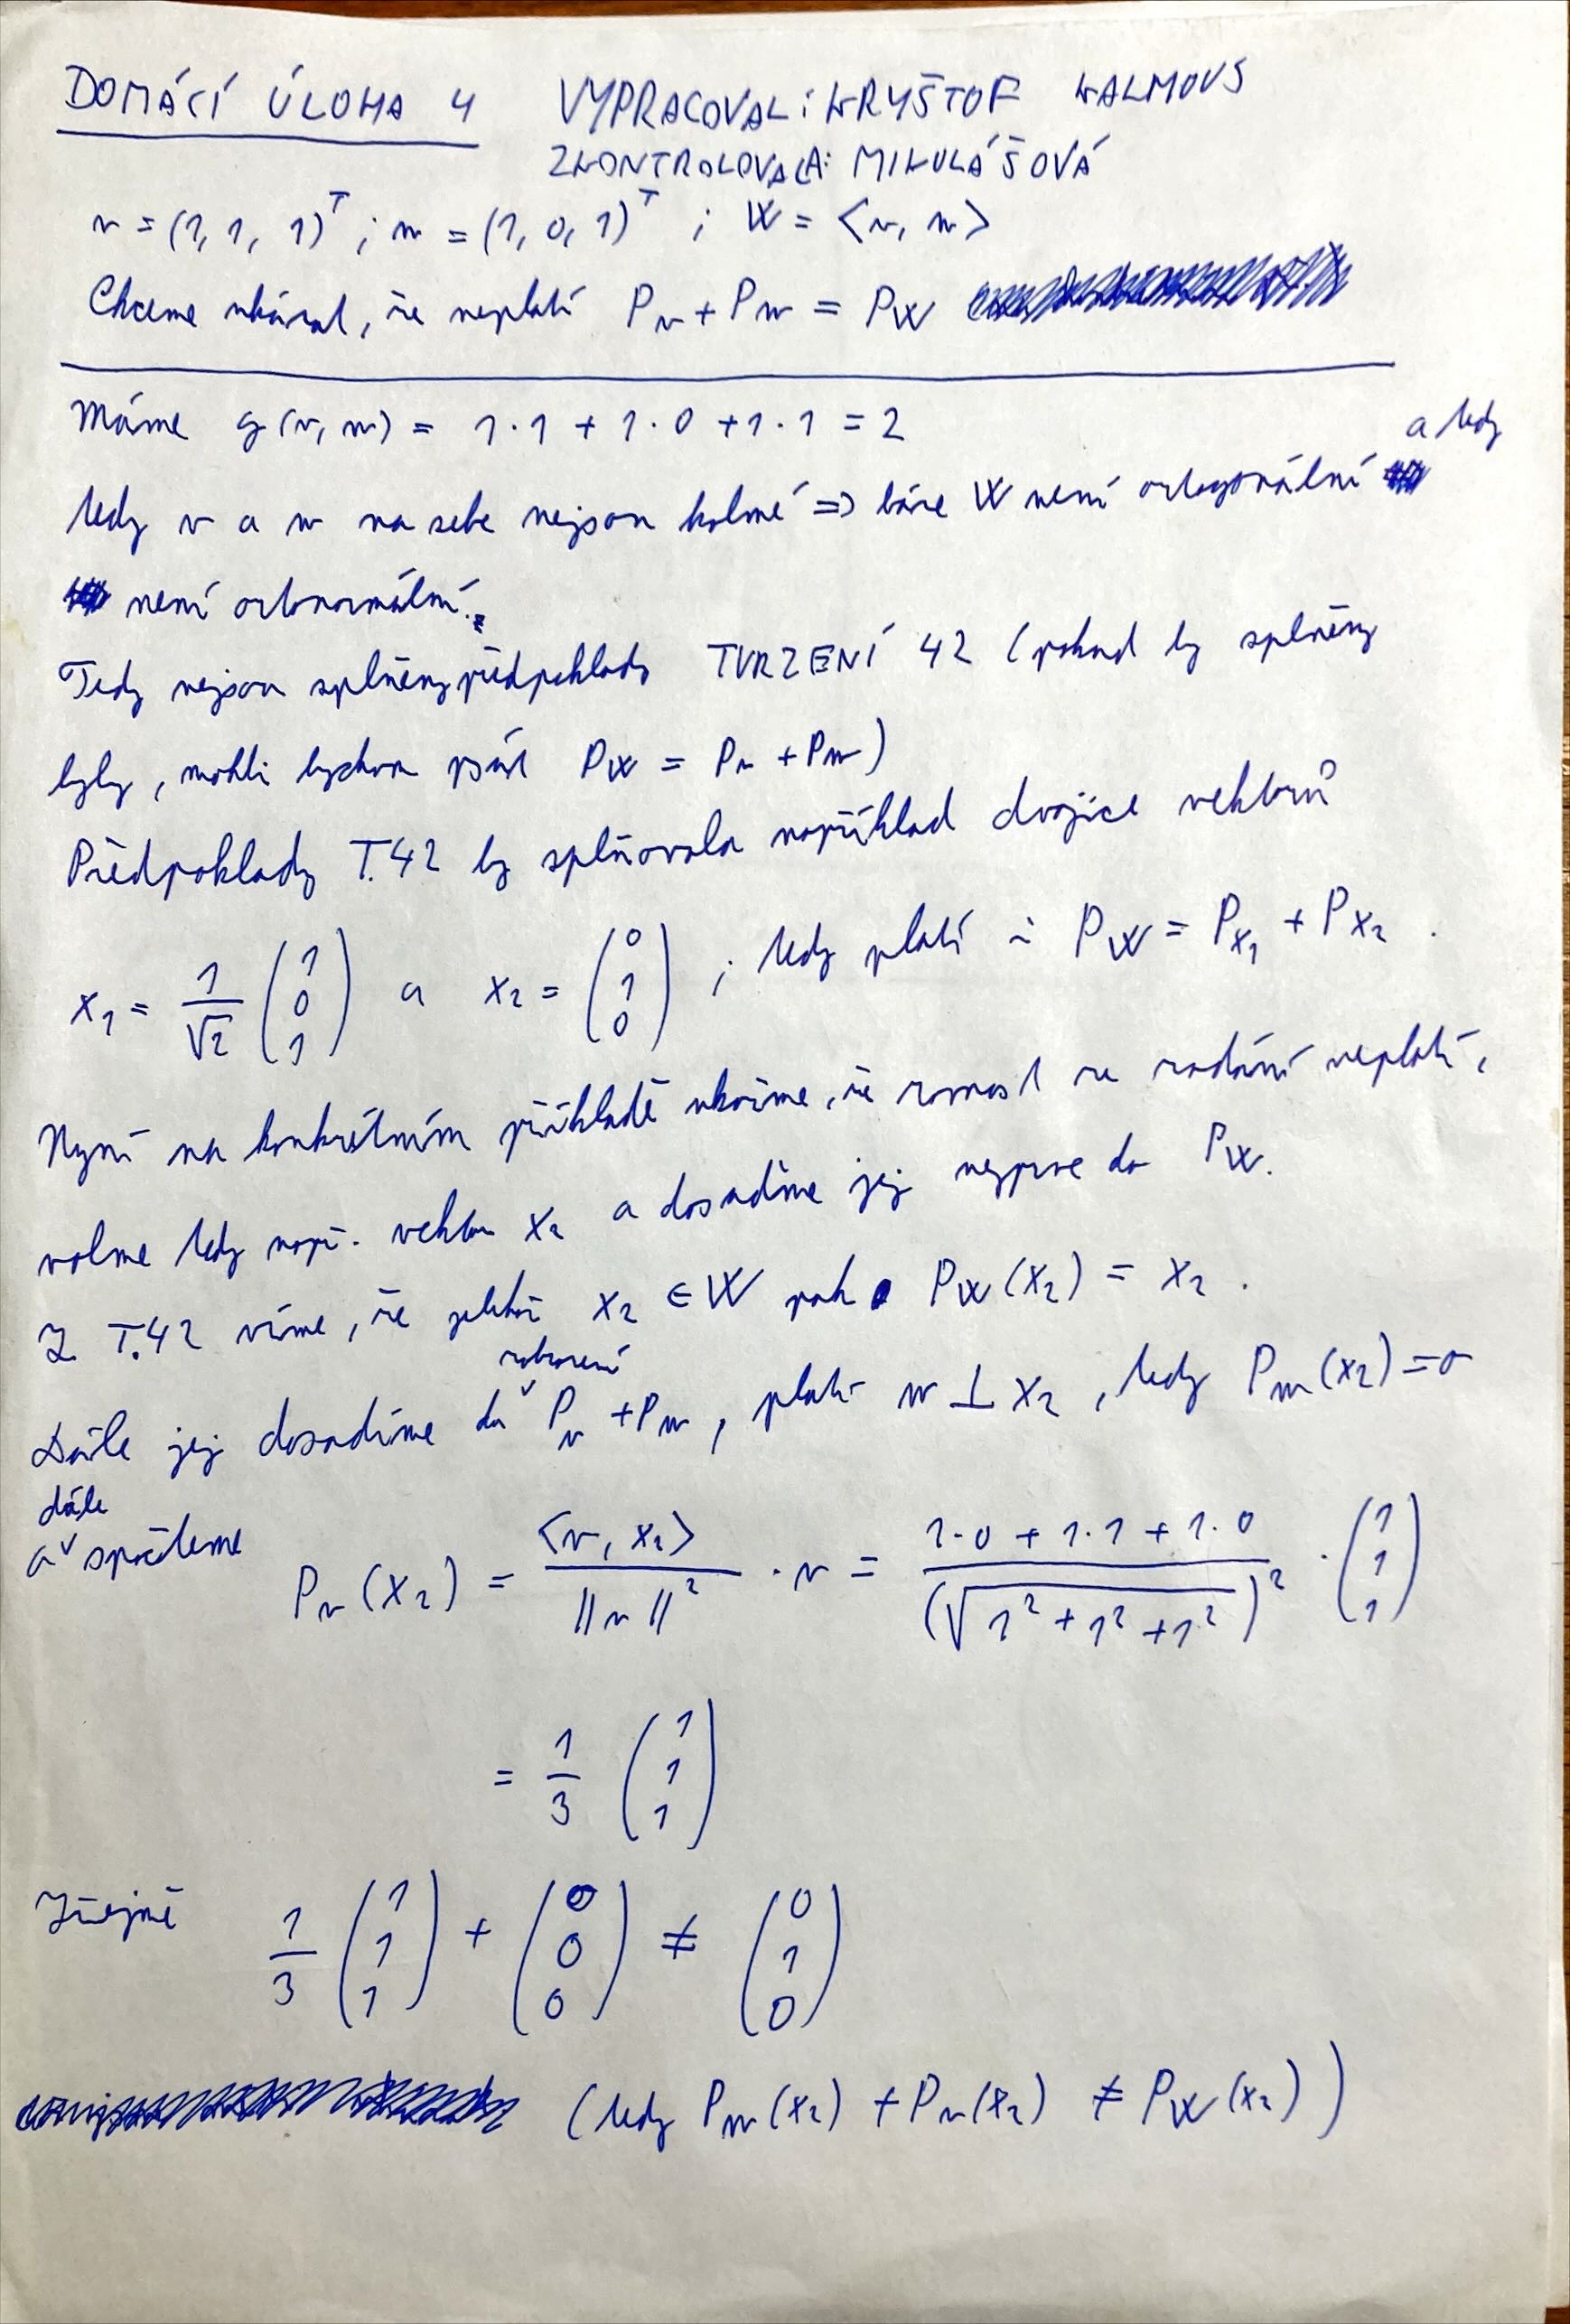 DOMÁCÍ ÚLOHA 4 VYPRACOVAL: KRYŠTOF KALMOVS
ZKONTROLOVALA: MIKULÁŠOVÁ
v = (1, 1, 1)ᵀ ; w = (1, 0, 1)ᵀ ; W = ⟨v, w⟩
Chceme ukázat, že neplatí P_v + P_w = P_W
Máme g(v, w) = 1·1 + 1·0 + 1·1 = 2
tedy v a w na sebe nejsou kolmé ⇒ báze W není ortogonální a tedy
není ortonormální.
Tedy nejsou splněny předpoklady TVRZENÍ 42 (pokud by splněny
byly, mohli bychom psát P_W = P_v + P_w)
Předpoklady T.42 by splňovala například dvojice vektorů
x₁ = 1/√2 (1 0 1) a x₂ = (0 1 0) ; tedy platí i P_W = P_x₁ + P_x₂ .
Nyní na konkrétním příkladě ukažme, že rovnost ze zadání neplatí,
volme tedy např. vektor x₂ a dosadíme jej nejprve do P_W.
Z T.42 víme, že jelikož x₂ ∈ W pak P_W(x₂) = x₂ .
Dále jej dosadíme do zobrazení P_v + P_w , platí w ⊥ x₂ , tedy P_w(x₂) = 0
a dále spočteme P_v(x₂) = ⟨v, x₂⟩ / ||v||² · v = (1·0 + 1·1 + 1·0) / (√(1² + 1² + 1²))² · (1 1 1)
= 1/3 (1 1 1)
Zřejmě 1/3 (1 1 1) + (0 0 0) ≠ (0 1 0)
(tedy P_w(x₂) + P_v(x₂) ≠ P_W(x₂))